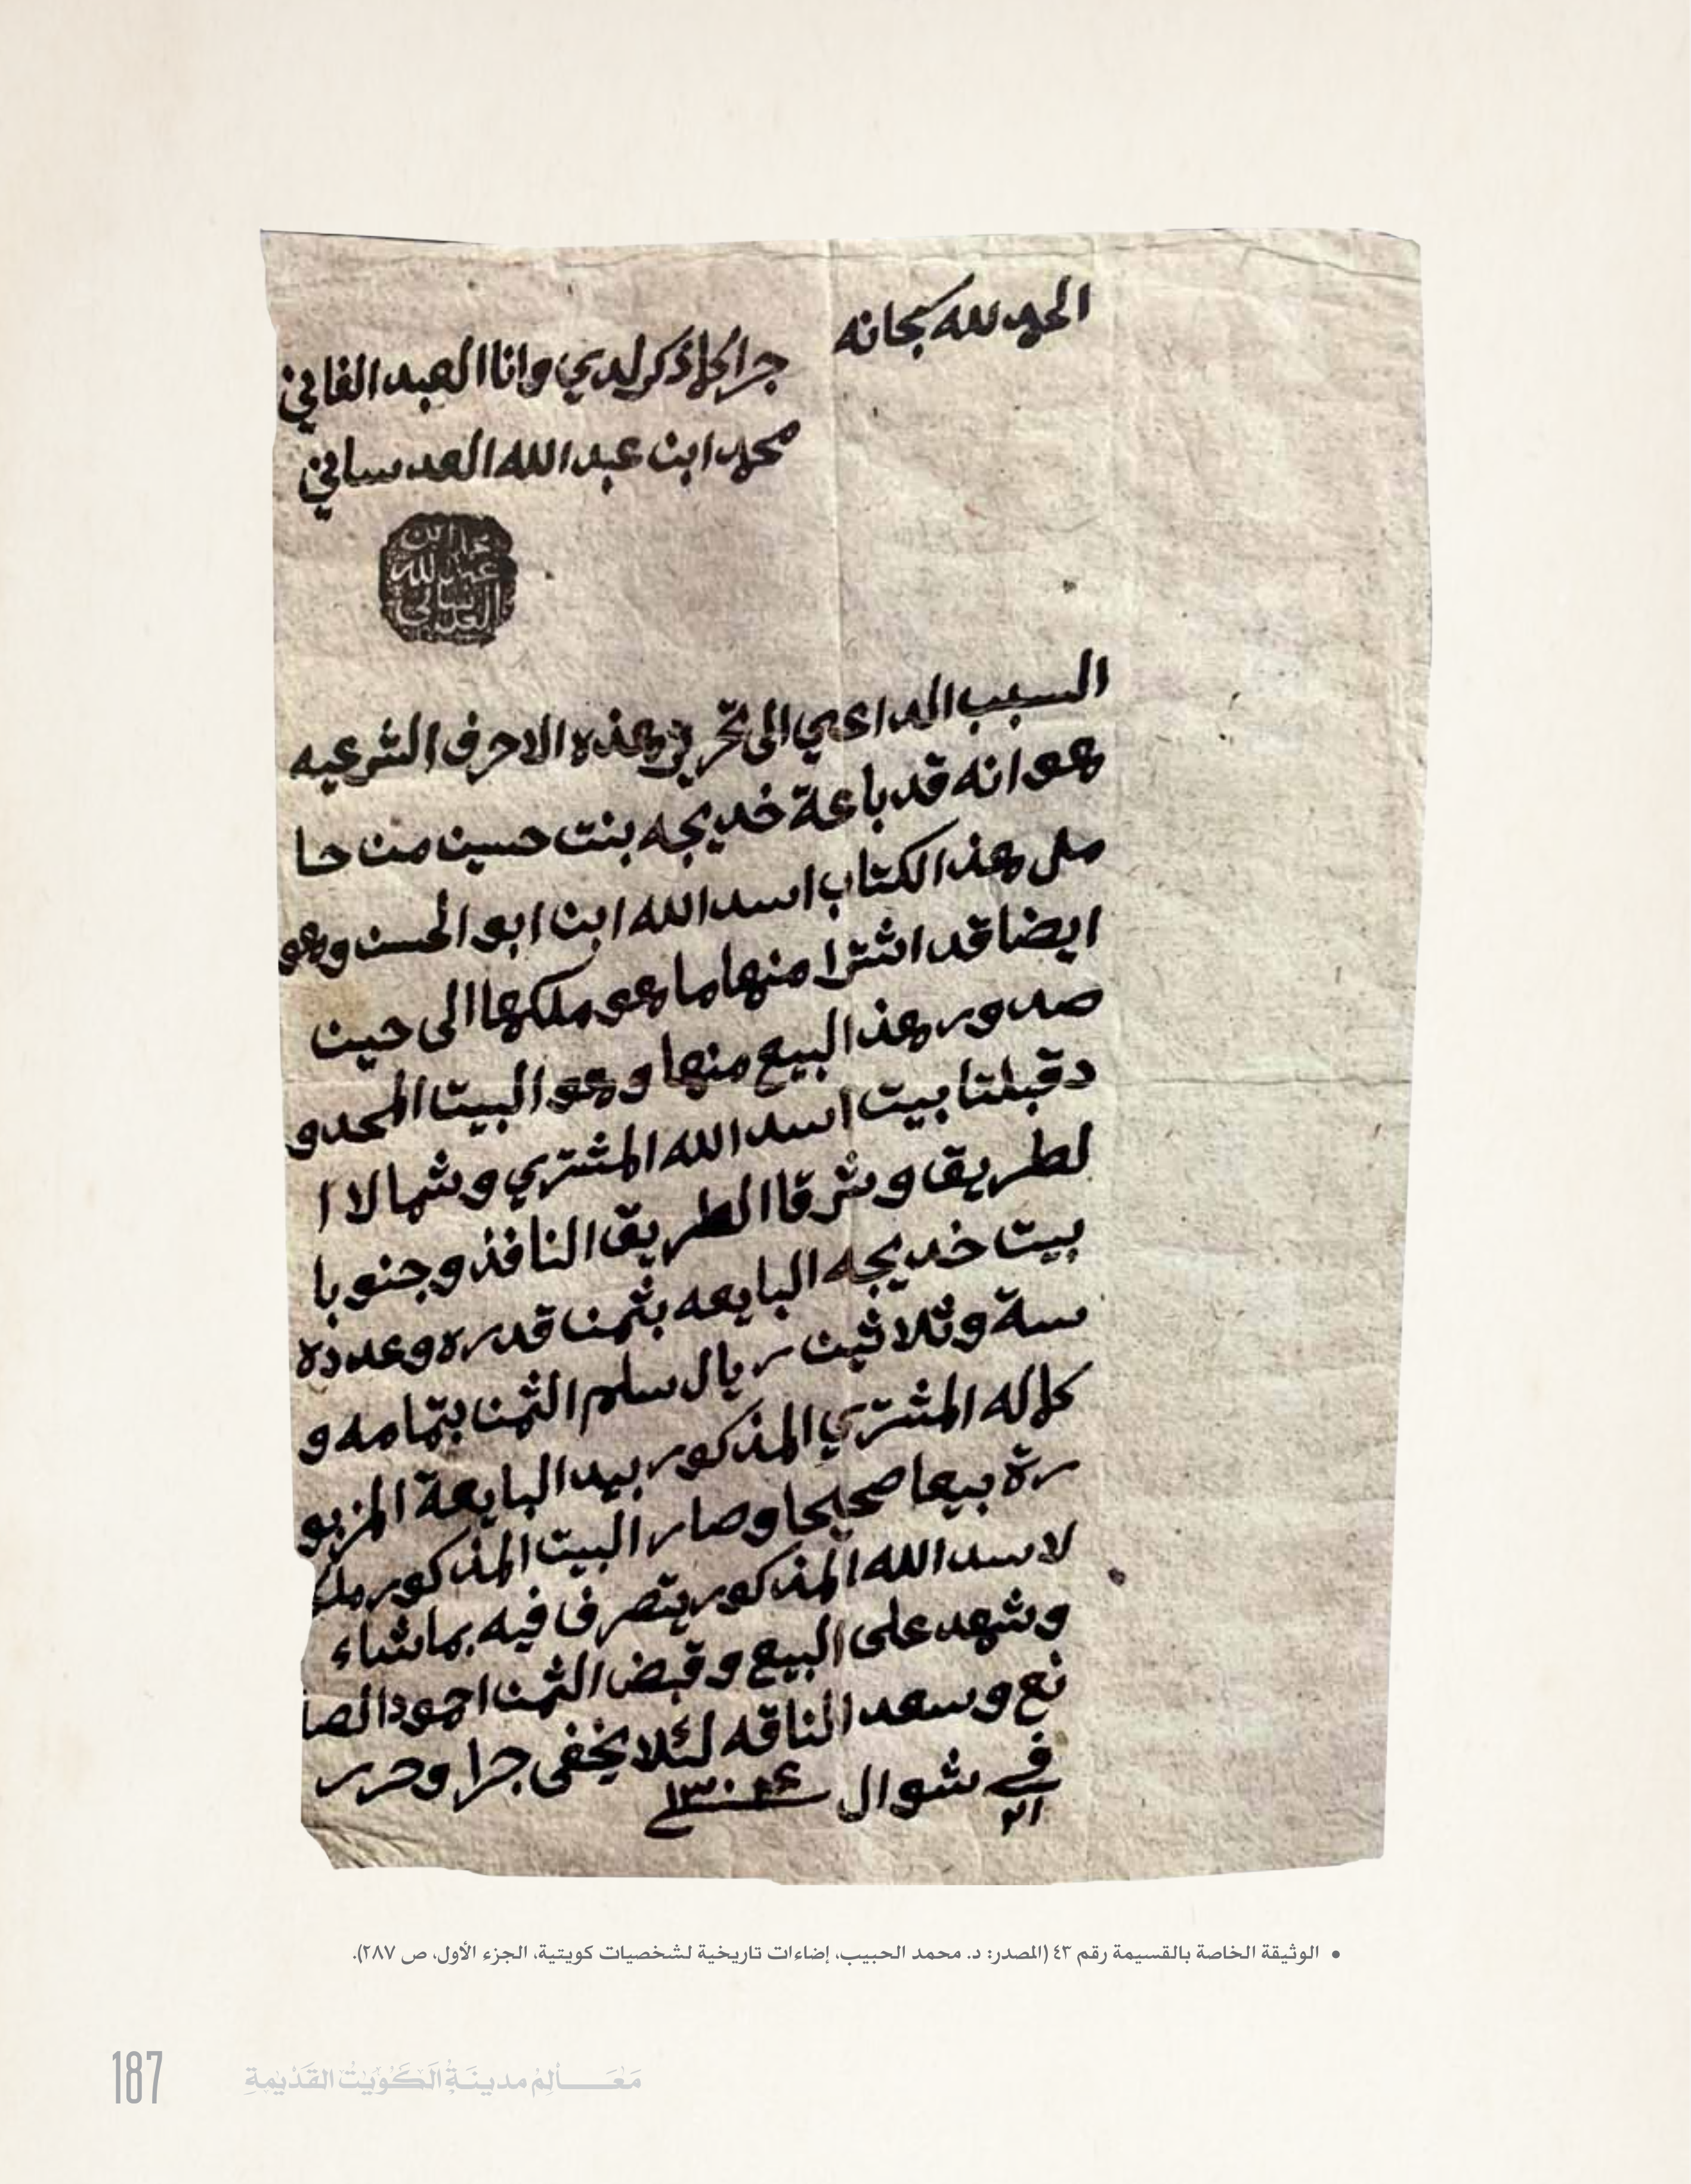 الحمد لله سبحانه
جرا كلما ذكر لدي وانا العبد الفاني
محمد ابن عبد الله العدساني
محمد ابن
عبد الله
العدساني
السبب الداعي الى تحرير هذه الاحرف الشرعيه
هو انه قد باعة خديجه بنت حسين من حا
مل هذا الكتاب اسد الله ابن ابو الحسن وهو
ايضا قد اشترا منها ما هو ملكها الى حين
صدور هذ البيع منها وهو البيت المحدو
د قبلتا بيت اسد الله المشتري وشمالا ا
لطريق وشرقا الطريق النافذ وجنوبا
بيت خديجه البايعه بثمن قدره وعدده
ستة وثلاثين ريال سلم الثمن بتمامه و
كماله المشتري المذكور بيد البايعة المزبو
رة بيعا صحيحا وصار البيت المذكور ملك
لاسد الله المذكور يتصرف فيه بما شاء
وشهد على البيع وقبض الثمن احمود الصا
نع وسعد الناقه لئلا يخفى جرا وحرر
في ٢١ شوال
• الوثيقة الخاصة بالقسيمة رقم ٤٣ (المصدر: د. محمد الحبيب، إضاءات تاريخية لشخصيات كويتية، الجزء الأول، ص ٢٨٧).
187 مَعَالِم مدينَة الكَوَيْت القَدْيمةِ